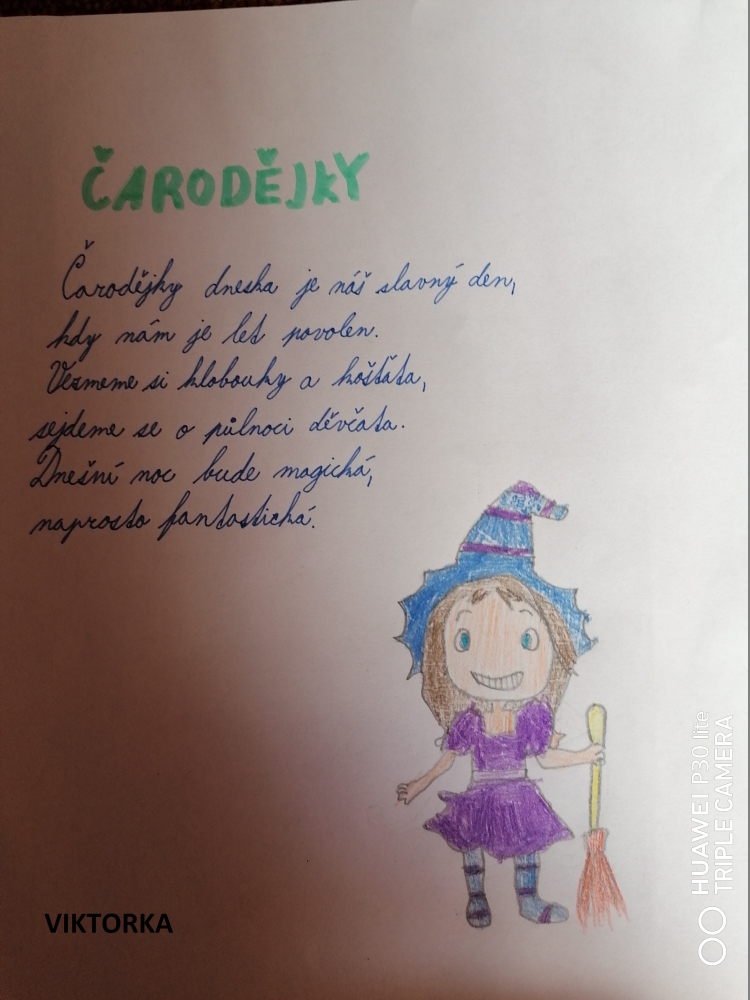 ČARODĚJKY
Čarodějky dneska je náš slavný den,
kdy nám je let povolen.
Vezmeme si klobouky a košťáta,
sejdeme se o půlnoci děvčata.
Dnešní noc bude magická,
naprosto fantastická.
VIKTORKA
HUAWEI P30 lite
TRIPLE CAMERA